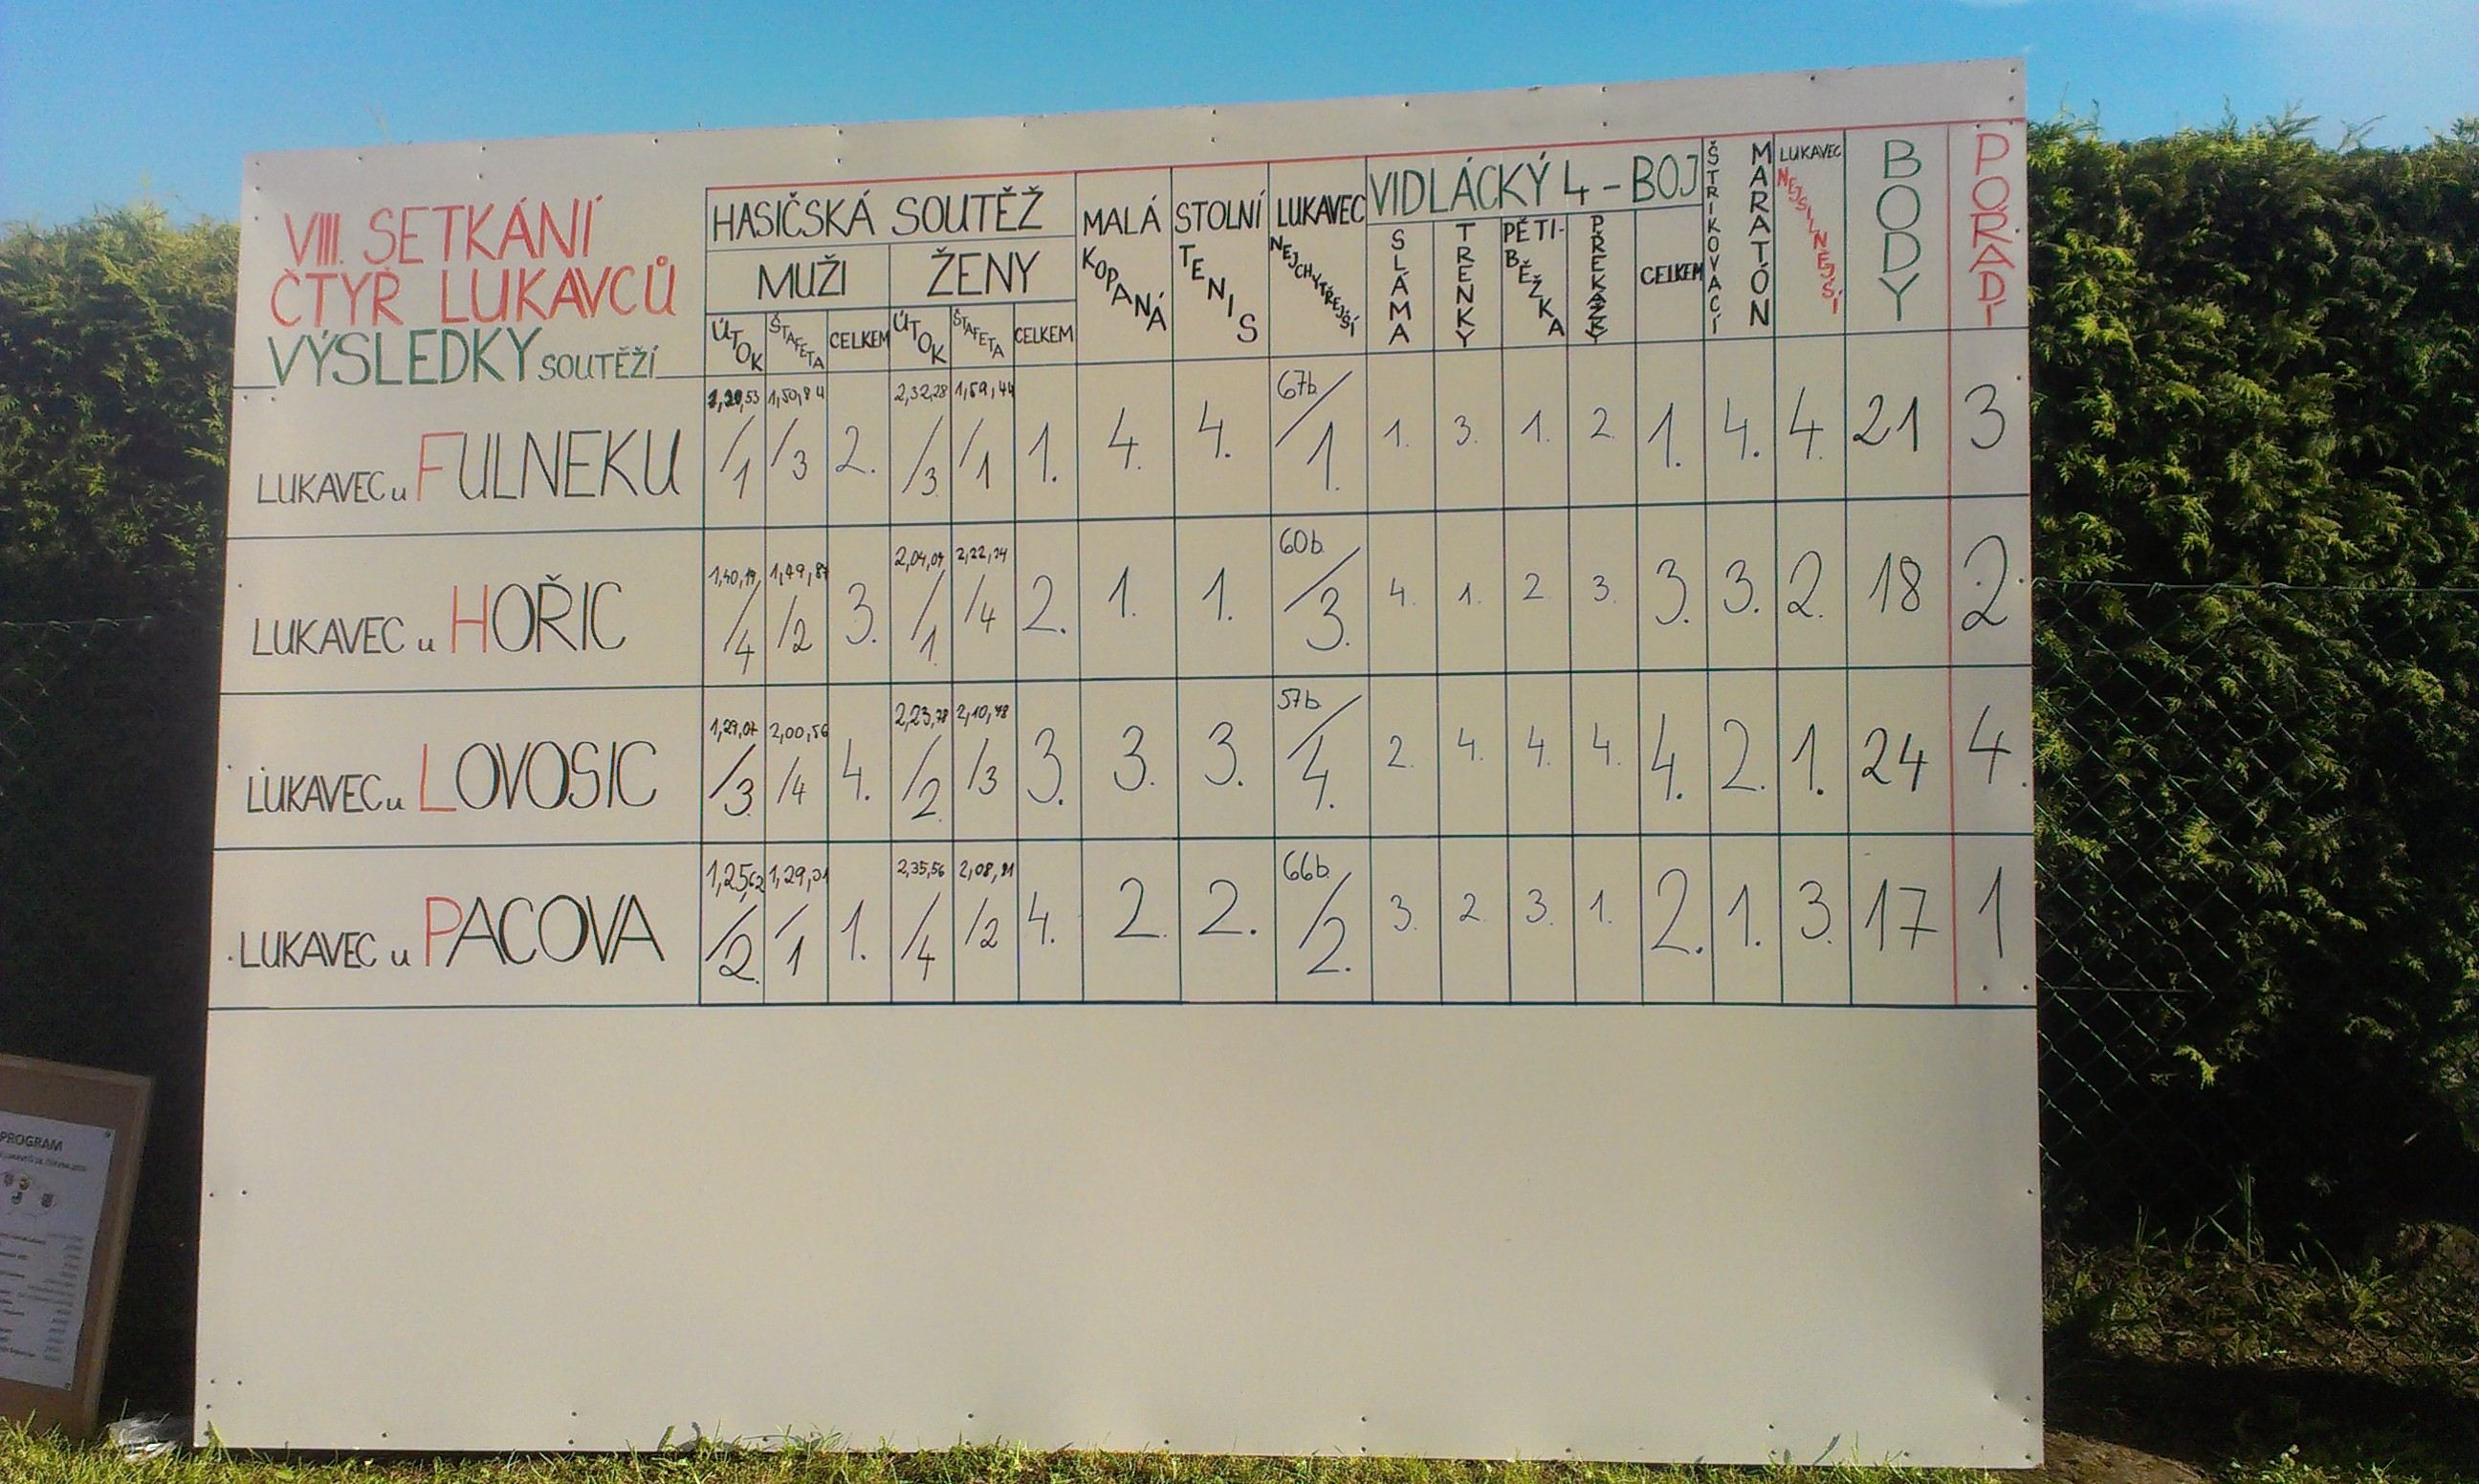 VIII. SETKÁNÍ
ČTYŘ LUKAVCŮ
VÝSLEDKY SOUTĚŽÍ
HASIČSKÁ SOUTĚŽ
MUŽI ŽENY
ÚTOK ŠTAFETA CELKEM ÚTOK ŠTAFETA CELKEM
MALÁ KOPANÁ
STOLNÍ TENIS
LUKAVEC NEJCHYTŘEJŠÍ
VIDLÁCKÝ 4-BOJ
SLÁMA TRENKY PĚTI-BĚŽKA PŘEKÁŽKY CELKEM
ŠTRIKOVACÍ MARATÓN
LUKAVEC NEJSILNĚJŠÍ
BODY
POŘADÍ
1,50,84 2,32,28 1,59,44 67b
LUKAVEC u FULNEKU /1 /3 2. /3. /1 1. 4. 4. /1. 1. 3. 1. 2. 1. 4. 4. 21 3
1,40,19 1,49,87 2,04,09 2,22,24 60b
LUKAVEC u HOŘIC /4 /2 3. /1. /4 2. 1. 1. /3. 4. 1. 2. 3. 3. 3. 2. 18 2
1,29,07 2,00,56 2,23,78 2,10,78 57b
LUKAVEC u LOVOSIC /3. /4 4. /2. /3 3. 3. 3. /4. 2. 4. 4. 4. 4. 2. 1. 24 4.
1,25,62 1,29,21 2,35,56 2,08,91 66b
LUKAVEC u PACOVA /2. /1 1. /4 /2 4. 2. 2. /2. 3. 2. 3. 1. 2. 1. 3. 17 1
PROGRAM